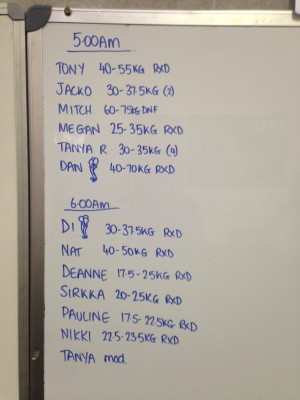 5:00AM
TONY 40-55KG RXD
JACKO 30-37.5KG (3)
MITCH 60-75KG DNF
MEGAN 25-35KG RXD
TANYA R 30-35KG (4)
DAN 40-70KG RXD
6:00AM
DI 30-37.5KG RXD
NAT 40-50KG RXD
DEANNE 17.5-25KG RXD
SIRKKA 20-25KG RXD
PAULINE 17.5-22.5KG RXD
NIKKI 22.5-23.5KG RXD
TANYA mod